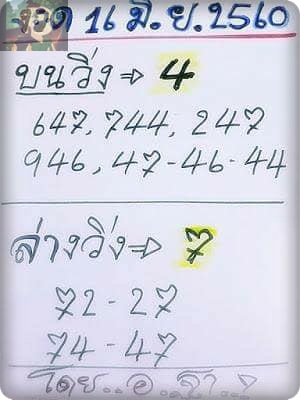 งวด 16 มิ.ย.2560
บนวิ่ง⇒ 4
647, 744, 247
946, 47-46-44
ล่างวิ่ง⇒ 7
72-27
74-47
โดย..อ.